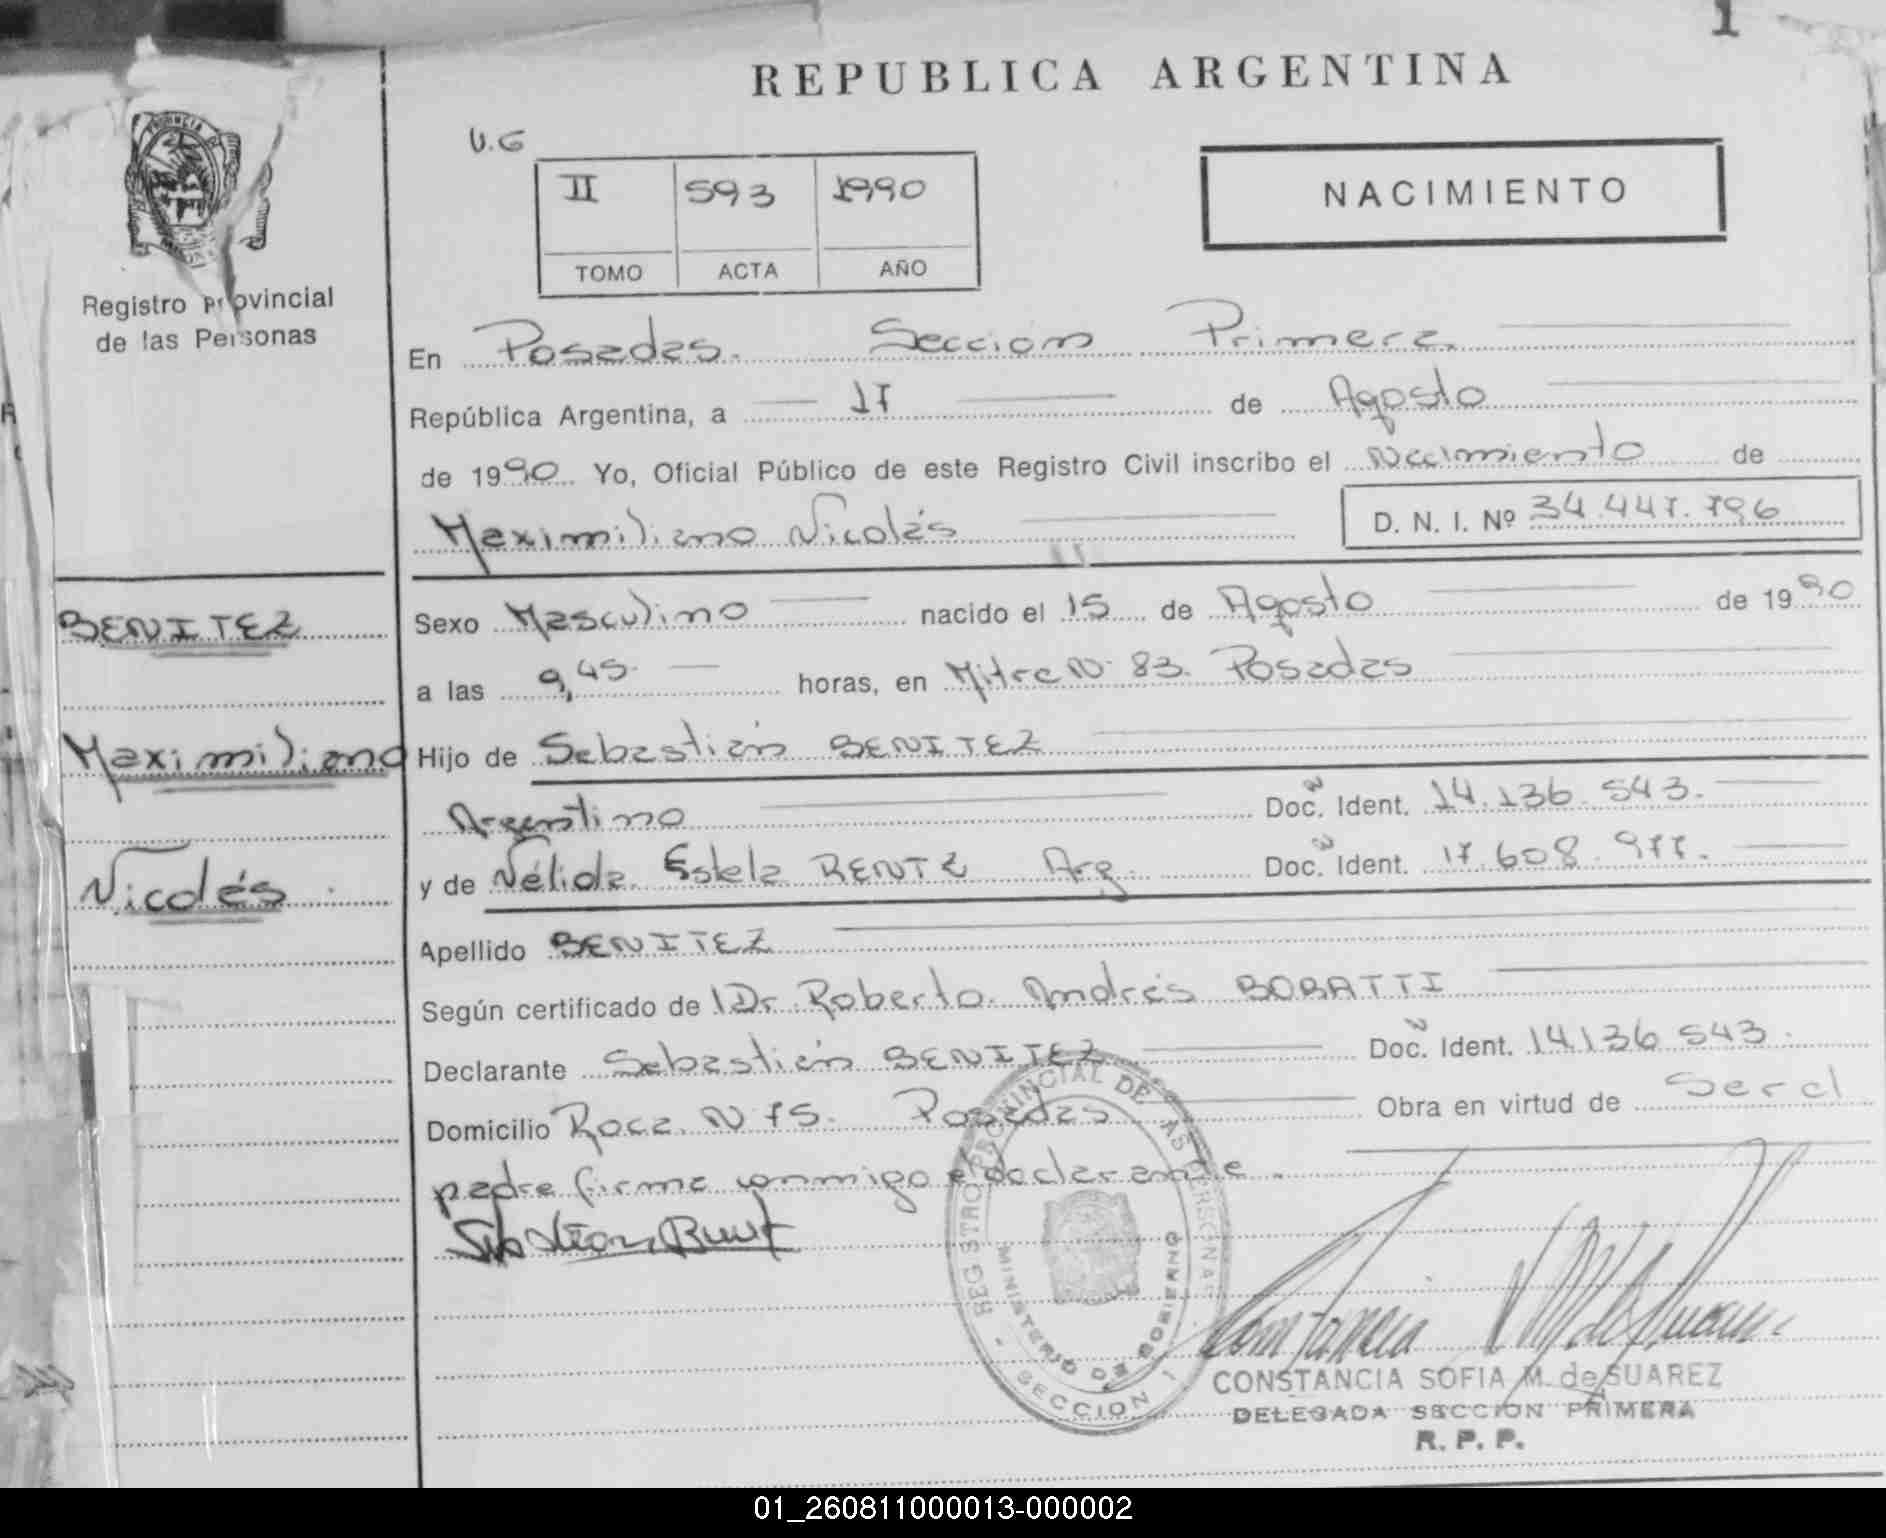 1
REPUBLICA ARGENTINA
V.G
II 593 1990
TOMO ACTA AÑO
NACIMIENTO
PROVINCIA DE
Registro Provincial
de las Personas
En Posadas. Sección Primera
República Argentina, a 17 de Agosto
de 1990 Yo, Oficial Público de este Registro Civil inscribo el Nacimiento de
Maximiliano Nicolás D. N. I. Nº 34.447.796
BENITEZ
Maximiliano
Nicolás
Sexo Masculino nacido el 15 de Agosto de 1990
a las 9,45 horas, en Mitre N. 83. Posadas
Hijo de Sebastián BENITEZ
Argentino Doc. Ident. 14.136.543.
y de Nélida Estela RENTZ Arg. Doc. Ident. 17.608.977.
Apellido BENITEZ
Según certificado de Dr. Roberto Andrés BOBATTI
Declarante Sebastián BENITEZ Doc. Ident. 14136543.
Domicilio Roca N 75. Posadas Obra en virtud de Ser el
padre firma conmigo el declarante.
REGISTRO PROVINCIAL DE LAS PERSONAS
MINISTERIO DE GOBIERNO
- SECCION 1
CONSTANCIA SOFIA M. de SUAREZ
DELEGADA SECCION PRIMERA
R. P. P.
01_260811000013-000002